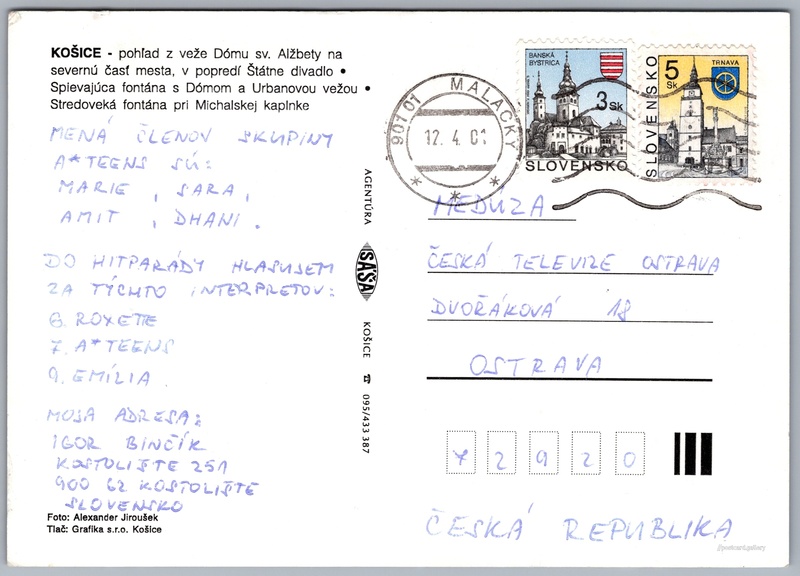 KOŠICE - pohľad z veže Dómu sv. Alžbety na
severnú časť mesta, v popredí Štátne divadlo •
Spievajúca fontána s Dómom a Urbanovou vežou •
Stredoveká fontána pri Michalskej kaplnke
MENÁ ČLENOV SKUPINY
A*TEENS SÚ:
MARIE, SARA,
AMIT, DHANI.
DO HITPARÁDY HLASUJEM
ZA TÝCHTO INTERPRETOV:
6. ROXETE
7. A*TEENS
9. EMÍLIA.
MOJA ADRESA:
IGOR BINČÍK
KOSTOLIŠTE 251
900 62 KOSTOLIŠTE
SLOVENSKO
Foto: Alexander Jiroušek
Tlač: Grafika s.r.o. Košice
AGENTÚRA
SAŠA
KOŠICE ☎ 095/433 387
901 01 MALACKY
12. 4. 01
BANSKÁ
BYSTRICA
3 Sk
SLOVENSKO
SLOVENSKO
5 Sk
TRNAVA
MEDÚZA
ČESKÁ TELEVIZE OSTRAVA
DVOŘÁKOVÁ 18
OSTRAVA
7 2 9 2 0
ČESKÁ REPUBLIKA
@postcard.gallery